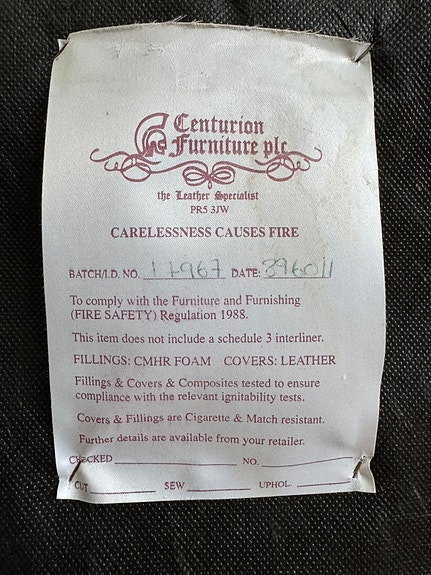 Centurion
Furniture plc
the Leather Specialist
PR5 3JW
CARELESSNESS CAUSES FIRE
BATCH/I.D. NO. 17967 DATE: 396011
To comply with the Furniture and Furnishing
(FIRE SAFETY) Regulation 1988.
This item does not include a schedule 3 interliner.
FILLINGS: CMHR FOAM COVERS: LEATHER
Fillings & Covers & Composites tested to ensure
compliance with the relevant ignitability tests.
Covers & Fillings are Cigarette & Match resistant.
Further details are available from your retailer.
CHECKED NO.
CUT SEW UPHOL.